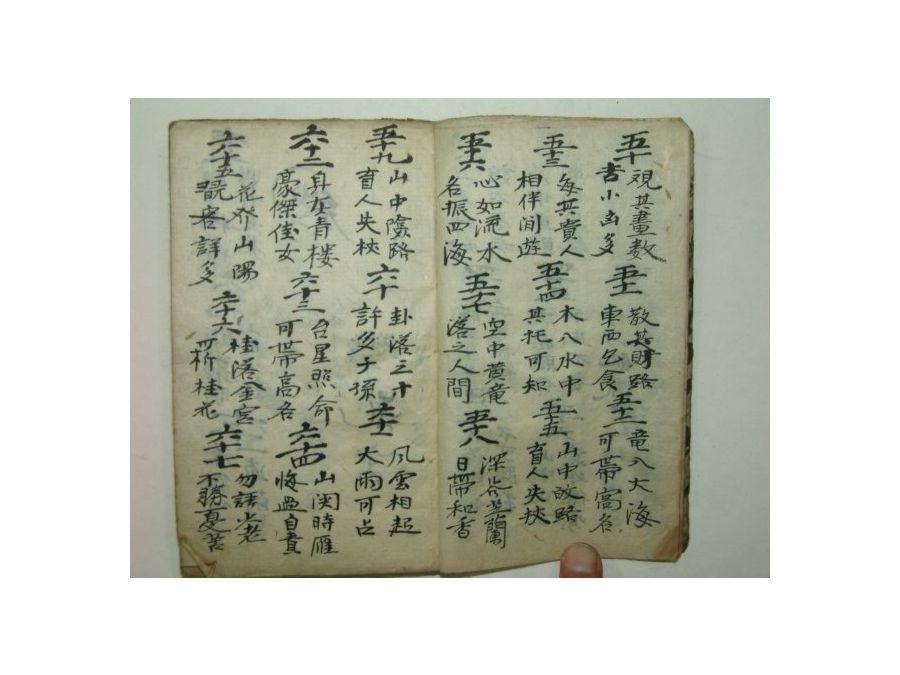 五十
視其畫數
吉小凶多
五十一
散其財路
東西乞食
五十二
竜入大海
可帶高名
五十三
每其貴人
相伴間遊
五十四
木入水中
其托可知
五十五
山中故路
盲人失杖
五十六
心如流水
名振四海
五十七
空中黃竜
落之人間
五十八
深谷芝蘭
日帶和香
五十九
山中險路
盲人失杖
六十
卦落三十
許多子孫
六十一
風雲相起
大雨可占
六十二
身在青樓
豪傑佳女
六十三
台星照命
可帶高名
六十四
山関時雁
悔過自責
六十五
花發山陽
親客詳多
六十六
桂落金宮
可折桂花
六十七
勿話少老
不勝憂苦